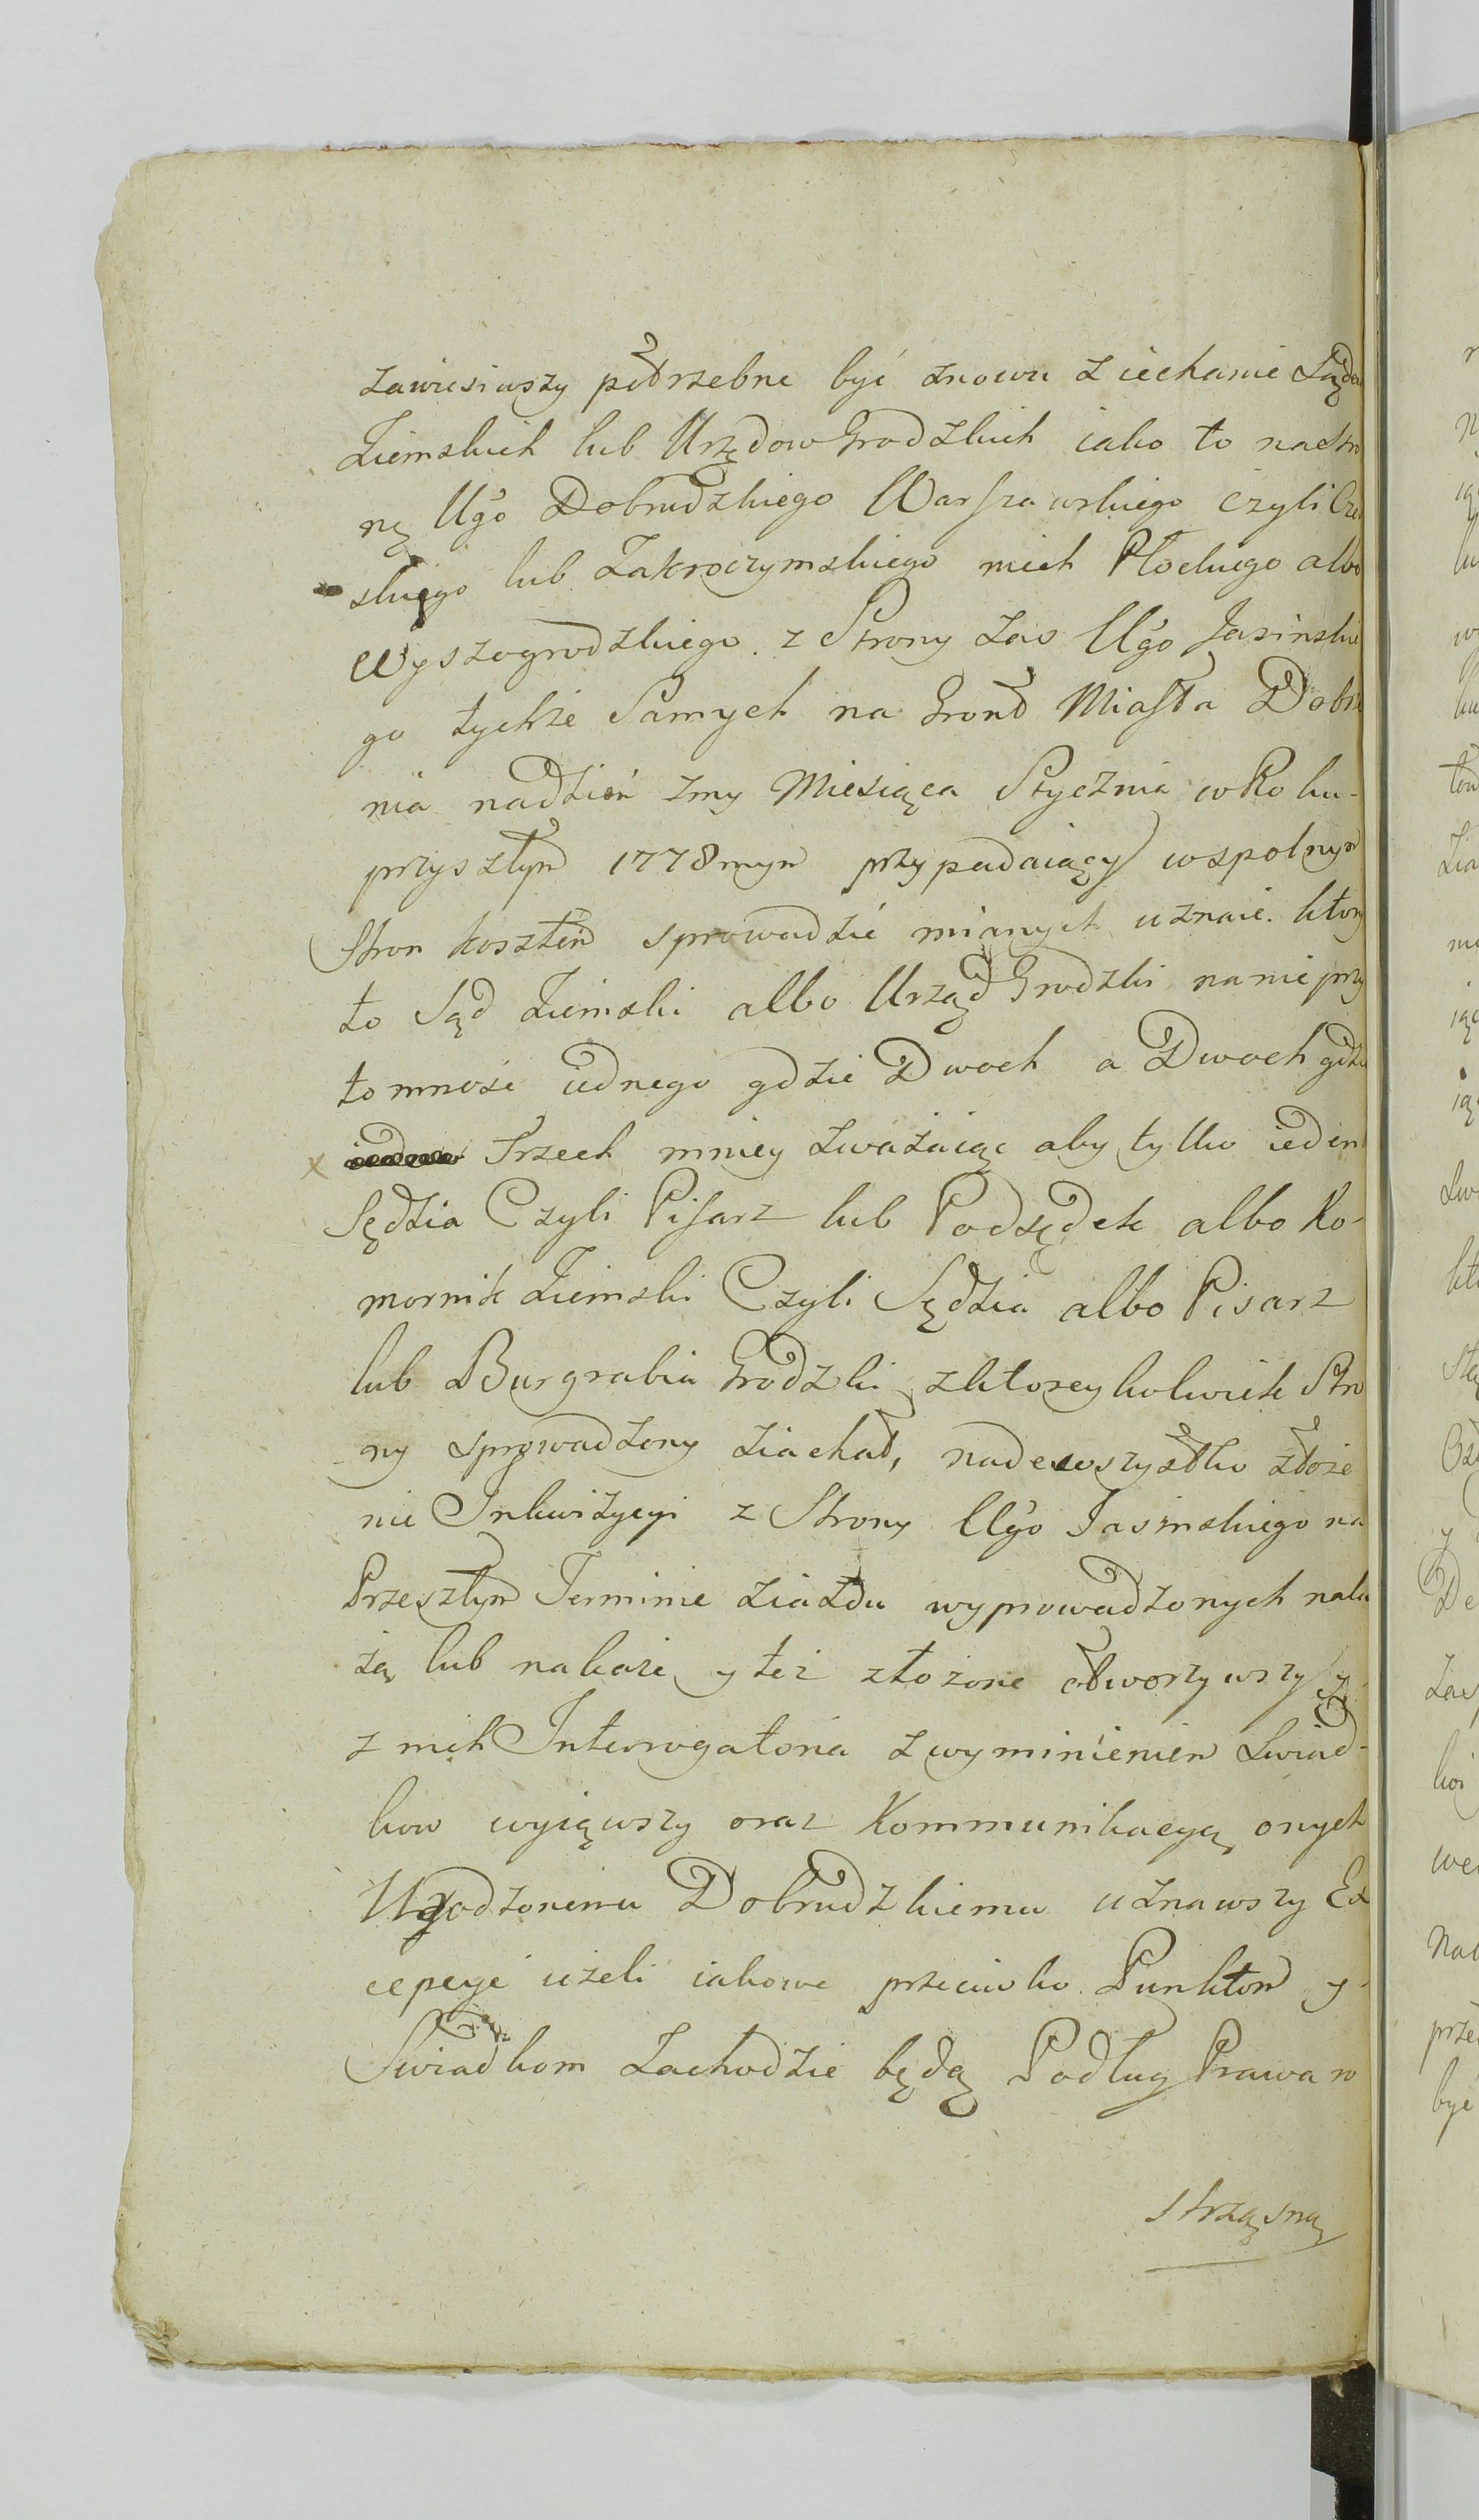 zawiesiwszy potrzebne być znowu ziechanie Sądow
Ziemskich lub Urzędow Grodzkich iako to na Stro
nę Ugo Dobrudzkiego Warszawskiego czyli Czer
skiego lub Zakroczymskiego niech Płockiego albo
Wyszogrodzkiego. z Strony zas Ugo Jasinskie
go tychże Samych na Gront Miasta Dobrz
nia na dzień 7my Miesiąca Stycznia w Roku
przyszłym 1778mym przypadaiący wspolnym
Stron kosztem sprowadzić mianych uznaie. ktory
to Sąd Ziemski albo Urząd Grodzki na nieprzy
tomność iednego gdzie Dwoch a Dwoch gdzie
x Trzech mniey zważaiąc aby tylko ieden
Sędzia Czyli Pisarz lub Podsędek albo Ko-
mornik Ziemski Czyli Sędzia albo Pisarz
lub Burgrabia Grodzki z ktoreykolwiek Stro
ny sprowadzony ziachał, nadewszystko złoże
nie Inkwizycyi z Strony Ugo Jasinskiego na
Przeszłym Terminie ziazdu wyprowadzonych naka
że lub nakaże y też złożone otworzywszy y
z nich Interrogatoria z wyminieniem Swiad-
kow wyiąwszy oraz Kommunikacyą onych
Urodzonemu Dobrudzkiemu uznawszy Ex
cepcye ieżeli iakowe przeciwko Punktom y
Swiadkom zachodzie będą Podług Prawa ro
strząsną